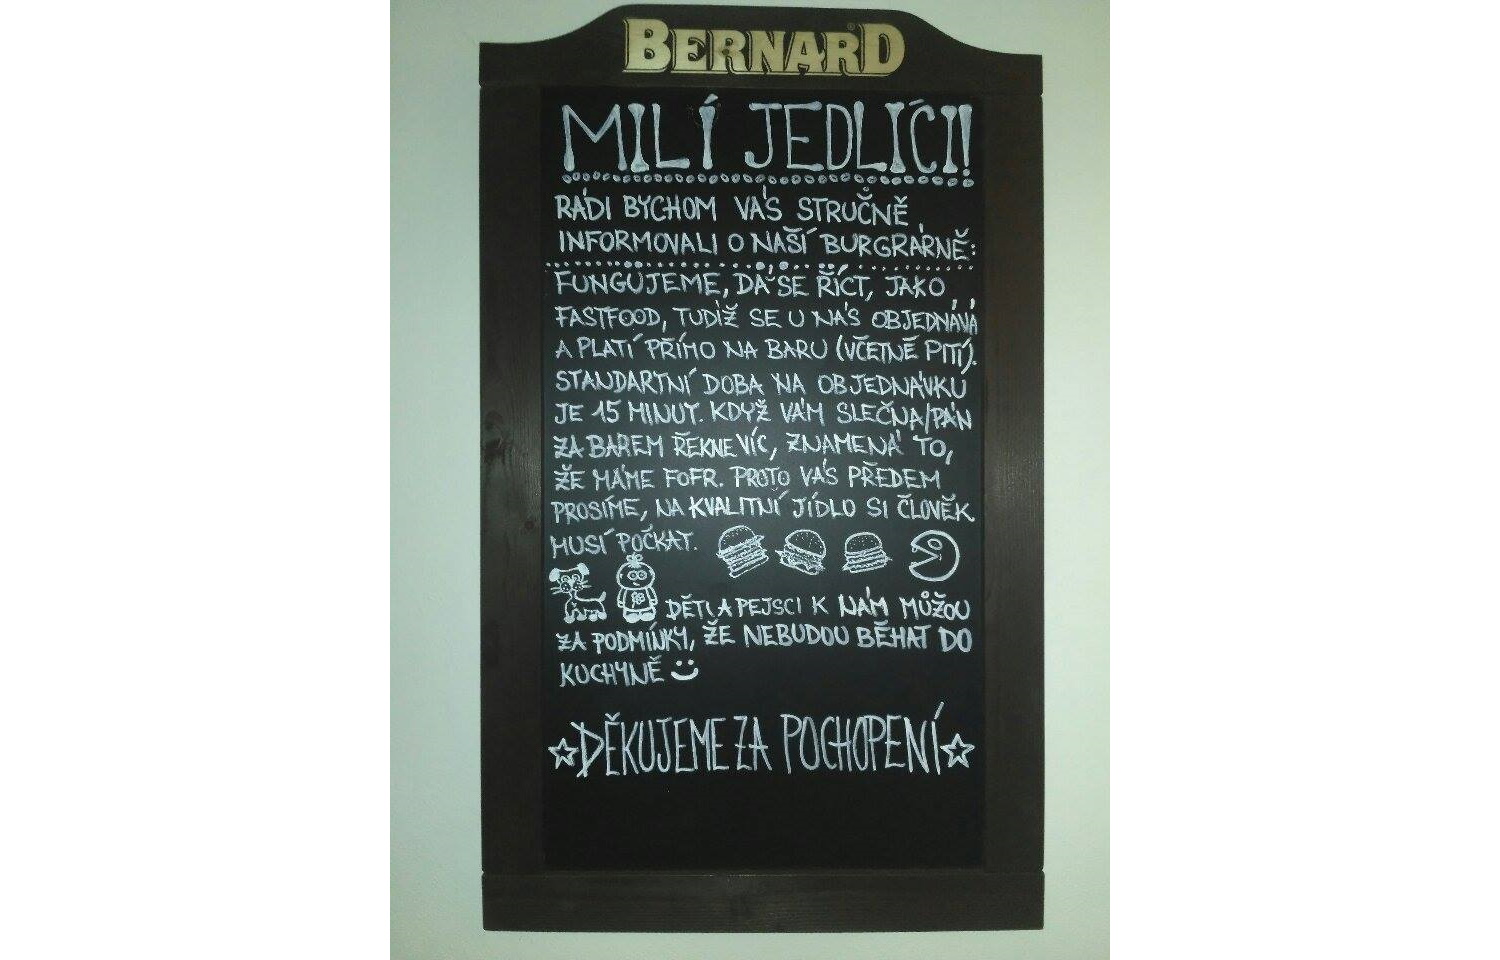 BERNARD®
MILÍ JEDLÍCI!
RÁDI BYCHOM VÁS STRUČNĚ
INFORMOVALI O NAŠÍ BURGRÁRNĚ:
FUNGUJEME, DÁ SE ŘÍCT, JAKO
FASTFOOD, TUDÍŽ SE U NÁS OBJEDNÁVÁ
A PLATÍ PŘÍMO NA BARU (VČETNĚ PITÍ).
STANDARTNÍ DOBA NA OBJEDNÁVKU
JE 15 MINUT. KDYŽ VÁM SLEČNA/PÁN
ZA BAREM ŘEKNE VÍC, ZNAMENÁ TO,
ŽE MÁME FOFR. PROTO VÁS PŘEDEM
PROSÍME, NA KVALITNÍ JÍDLO SI ČLOVĚK
MUSÍ POČKAT.
DĚTI A PEJSCI K NÁM MŮŽOU
ZA PODMÍNKY, ŽE NEBUDOU BĚHAT DO
KUCHYNĚ
DĚKUJEME ZA POCHOPENÍ